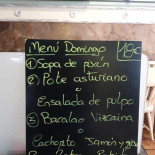 Menú Domingo 18€
① Sopa de picán
② Pote asturiano
o
Ensalada de pulpo
③ Bacalao Vizcaina
o
Cachopito Jamón y queso